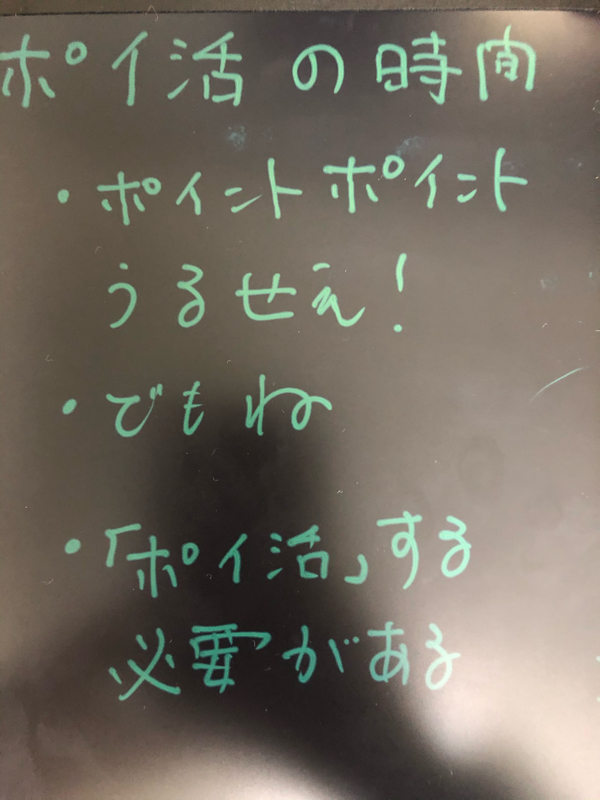 ポイ活の時間
・ポイントポイント
うるせぇ!
・でもね
・「ポイ活」する
必要がある